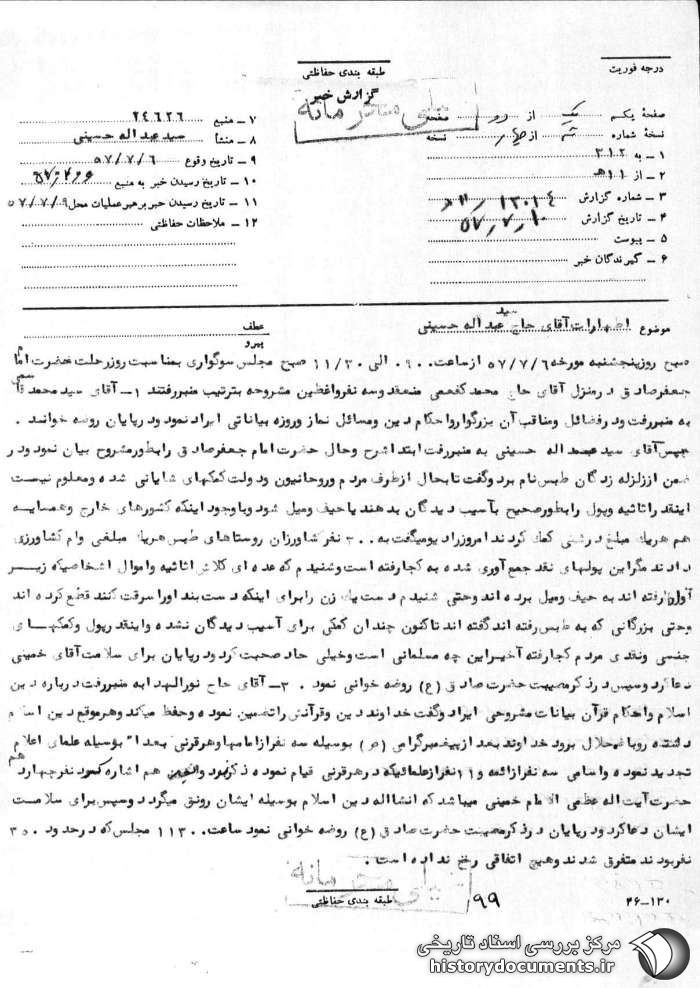 درجه فوریت
طبقه بندی حفاظتی
گزارش خبر
خیلی محرمانه
صفحهٔ یکسم یک از دو صفحه
نسخهٔ شماره از چهار نسخه
۱ - به ۳۱۲
۲ - از ۱۱هـ
۳ - شماره گزارش ۱۳۰۱۴/۱۱هـ
۴ - تاریخ گزارش ۵۷/۷/۱۰
۵ - پیوست
۶ - گیرندگان خبر
۷ - منبع ۲۴۶۲۶
۸ - منشأ سید عبداله حسینی
۹ - تاریخ وقوع ۵۷/۷/۶
۱۰ - تاریخ رسیدن خبر به منبع ۵۷/۷/۶
۱۱ - تاریخ رسیدن خبر برهبر عملیات محل ۵۷/۷/۹
۱۲ - ملاحظات حفاظتی
موضوع اظهارات آقای حاج سید عبداله حسینی
عطف
پیرو
صبح روز پنجشنبه مورخه ۵۷/۷/۶ از ساعت ۰۹۰۰ الی ۱۱/۳۰ صبح مجلس سوگواری بمناسبت روز رحلت حضرت امام
جعفر صادق در منزل آقای حاج محمد کفعمی منعقد و سه نفر واعظین مشروحه بترتیب منبر رفتند ۱- آقای سید محمد
به منبر رفت و در فضائل و مناقب آن بزرگوار و احکام دین و مسائل نماز و روزه بیاناتی ایراد نمود و در پایان روضه خواند .
سپس آقای سید عبداله حسینی به منبر رفت ابتدا شرح و حال حضرت امام جعفر صادق را بطور مشروح بیان نمود و در
ضمن از زلزله زدگان طبس نام برد و گفت تا بحال از طرف مردم و روحانیون و دولت کمکهای شایانی شده و معلوم نیست
اینقدر اثاثیه و پول را بطور صحیح بآسیب دیدگان بدهند یا حیف و میل شود و با وجود اینکه کشورهای خارج و همسایه
هم هر یک مبلغ درشتی کمک کردند امروز رادیو میگفت به ۳۰۰ نفر کشاورزان روستاهای طبس هر یک مبلغی وام کشاورزی
دادند مگر این پولهای نقد جمع آوری شده به کجا رفته است و شنیدم که عده ای کلاش اثاثیه و اموال اشخاصیکه زیر
آوار رفته اند به حیف و میل برده اند و حتی شنیدم دست یک زن را برای اینکه دست بند او را سرقت کنند قطع کرده اند
و حتی بزرگانی که به طبس رفته اند گفته اند تاکنون چندان کمکی برای آسیب دیدگان نشده و اینقدر پول و کمکهای
جنسی و نقدی مردم کجا رفته آخر این چه مسلمانی است و خیلی حاد صحبت کرد و در پایان برای سلامت آقای خمینی
دعا کرد و سپس در ذکر مصیبت حضرت صادق (ع) روضه خوانی نمود . ۳- آقای حاج نورالهدا به منبر رفت درباره دین
اسلام و احکام قرآن بیانات مشروحی ایراد و گفت خداوند دین و قرآنش را تضمین نموده و حفظ میکند و هر موقع دین اسلام
داشته رو باضمحلال برود خداوند بعد از پیغمبر گرامی (ص) بوسیله سه نفر از امامها و هر قرنی بعداً بوسیله علمای اعلام
تجدید نموده و اسامی سه نفر از ائمه و ۱۱ نفر از علمائیکه در هر قرنی قیام نموده ذکر نمود هم اشاره نفر چهاردهم
حضرت آیت اله عظمی الامام خمینی میباشد که انشااله دین اسلام بوسیله ایشان رونق میگردد و سپس برای سلامت
ایشان دعا کرد و در پایان در ذکر مصیبت حضرت صادق (ع) روضه خوانی نمود ساعت ۱۱۳۰ مجلس که در حدود ۳۵۰
نفر بودند متفرق شدند و هیچ اتفاقی رخ نداده است .
خیلی محرمانه
طبقه بندی حفاظتی
۹۹
۲۶-۱۳۰
مرکز بررسی اسناد تاریخی
historydocuments.ir